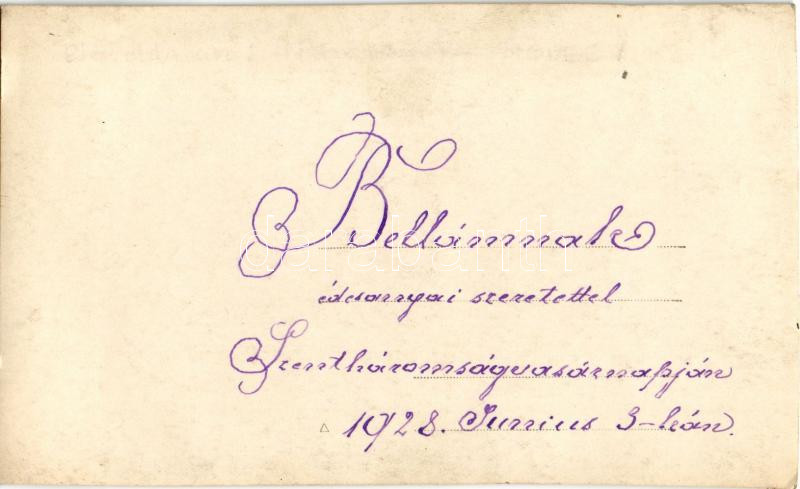 Bellámnak
édesanyai szeretettel
Szentháromságvasárnapján
1928. Junius 3-kán.